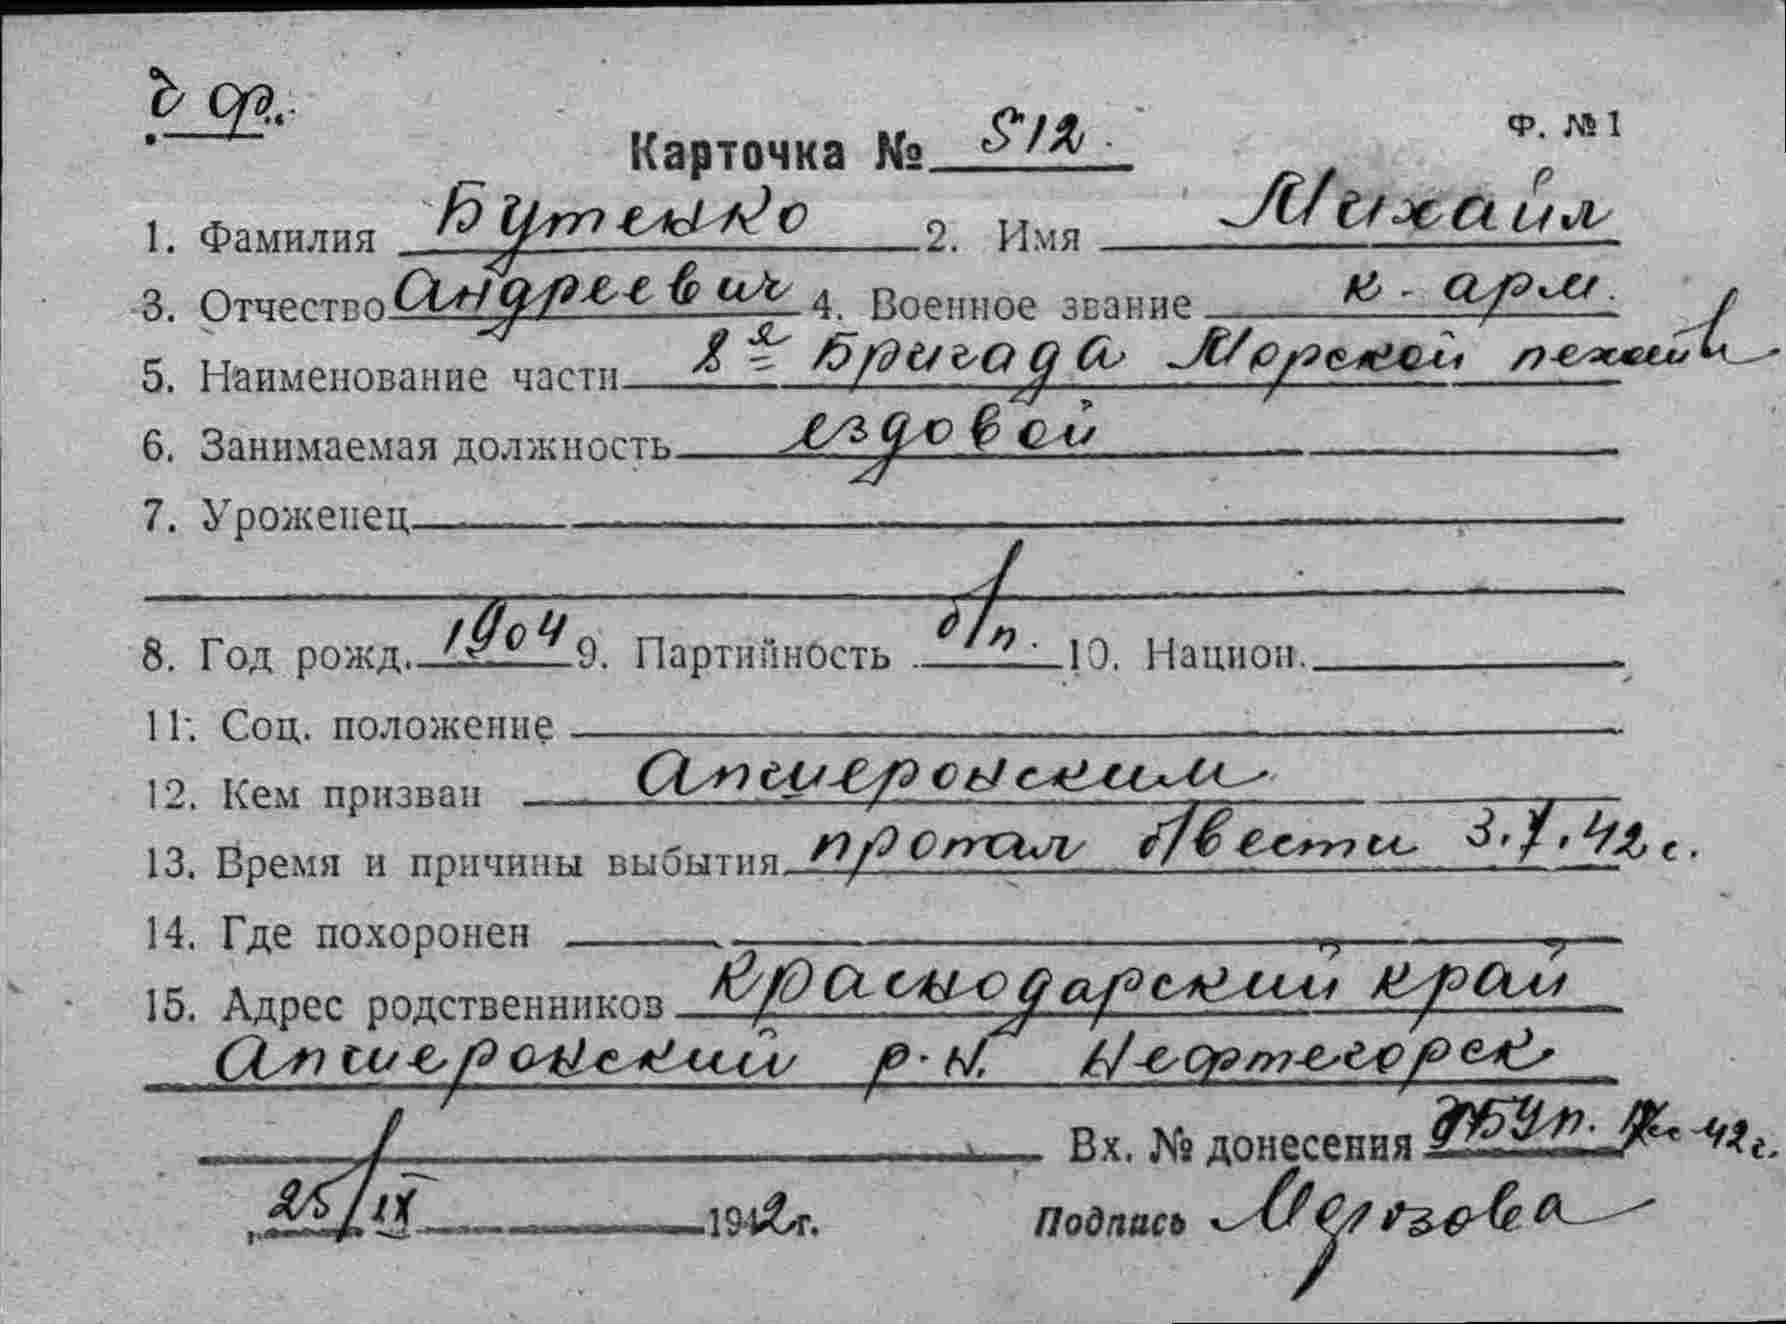 Ф. № 1
Карточка № 512.
1. Фамилия Бутенко 2. Имя Михаил
3. Отчество Андреевич 4. Военное звание к-арм.
5. Наименование части 8я Бригада Морской
6. Занимаемая должность ездовой
7. Уроженец
8. Год рожд. 1904 9. Партийность б/п. 10. Национ.
11. Соц. положение
12. Кем призван Апшеронским
13. Время и причины выбытия пропал
14. Где похоронен
15. Адрес родственников Краснодарский край
Апшеронский р-н. Нефтегорск
Вх. № донесения 42г.
25/IX 1942г. Подпись